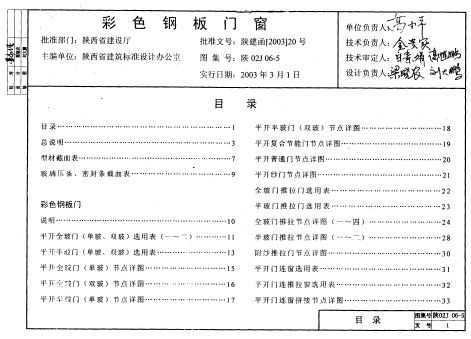 彩色钢板门窗
批准部门: 陕西省建设厅
批准文号: 陕建函[2003]20号
主编单位: 陕西省建筑标准设计办公室
图集号: 陕 02J 06-5
实行日期: 2003 年 3 月 1 日
单位负责人:
技术负责人:
技术审定人:
设计负责人:
目 录
目录 1
总说明 3
型材截面表 7
玻璃压条、密封条截面表 9
彩色钢板门
说明 10
平开全玻门(单玻、双玻)选用表(一~二) 11
平开半玻门(单玻、双玻)选用表 13
平开全玻门(单玻)节点详图 15
平开全玻门(双玻)节点详图 16
平开半玻门(单玻)节点详图 17
平开半玻门(双玻)节点详图 18
平开复合节能门节点详图 19
平开普通门节点详图 20
平开纱门节点详图 21
全玻门推拉门选用表 22
半玻门推拉门选用表 23
全玻门推拉节点详图(一~四) 24
半玻门推拉节点详图(一~二) 28
附纱推拉门节点详图 30
平开门连窗选用表 31
平开门连推拉窗选用表 32
平开门连窗拼接节点详图 33
目 录
图集号 陕02J 06-5
页 号 1